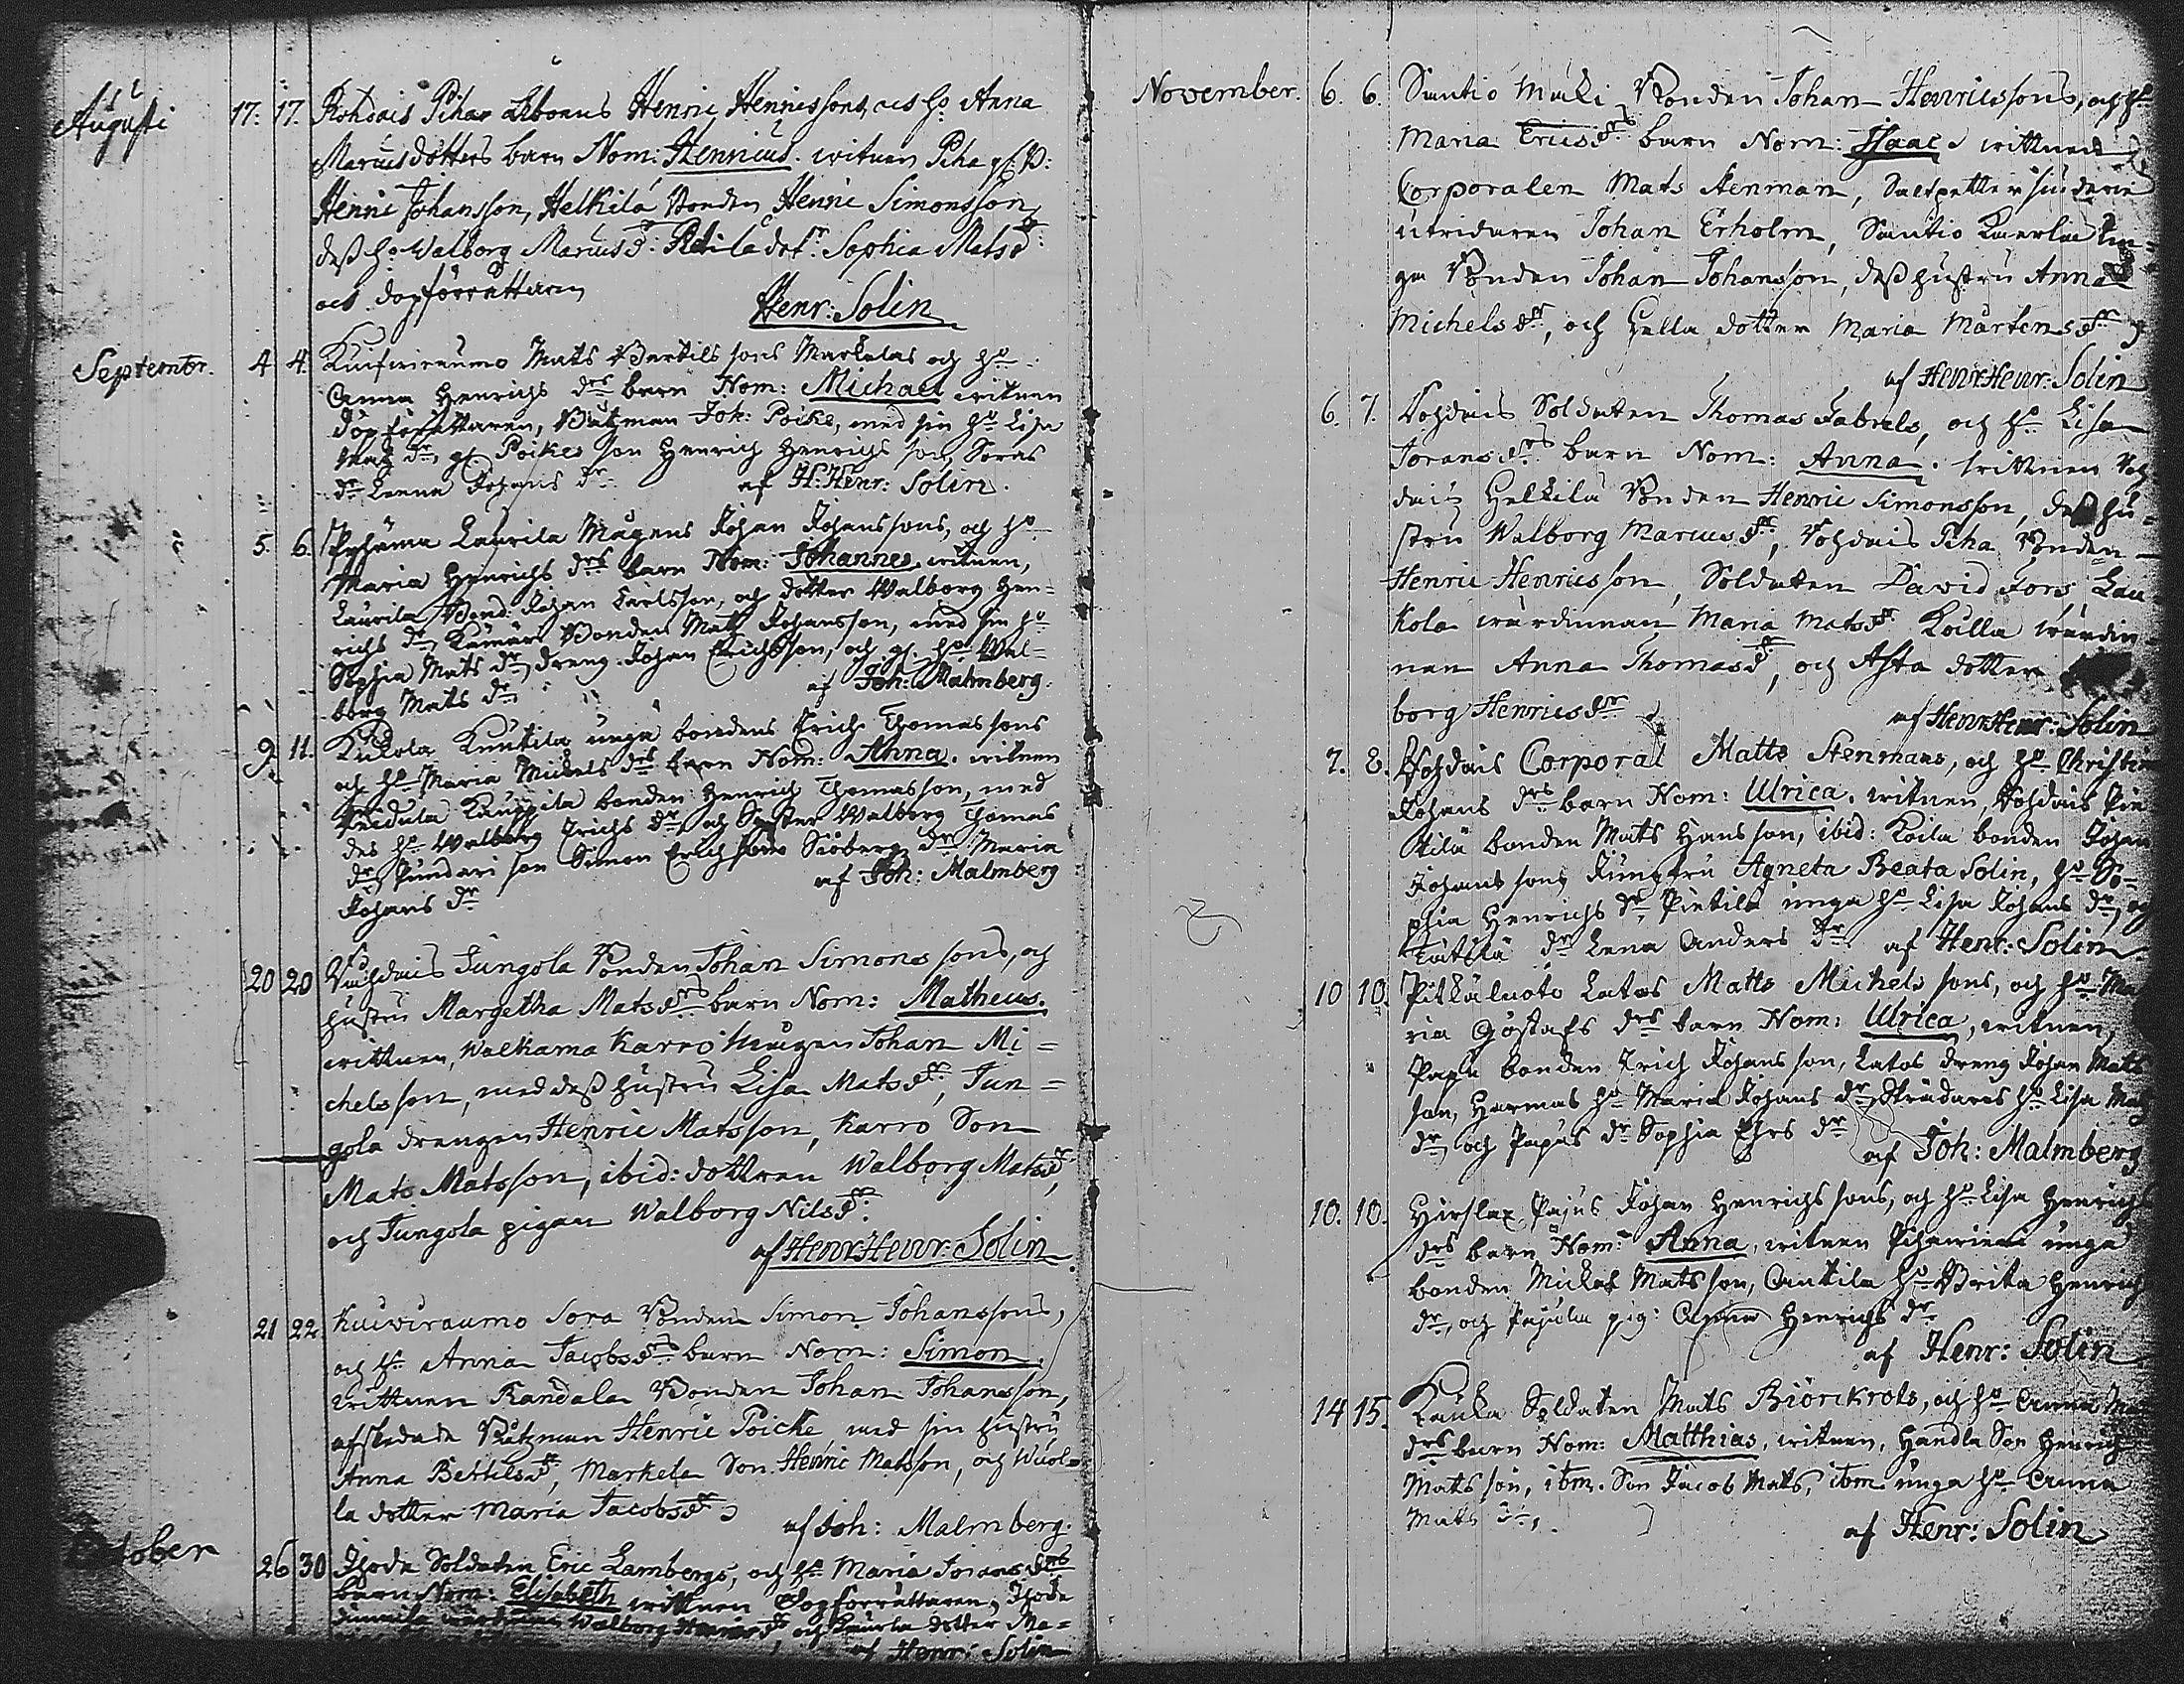 Augusti 17. 17. Henric Henricssons, och h:o Anna
Marcusdotters barn Nom: Henricus. witnen Piha
Henric Johansson, Helkilä Bonden Henric Simonsson,
dess h:o Walborg Marcus d:r Sophia Mats d:r
och dopförrättaren
Henr: Solin
Septembr. 4 4. Kuifwiraumo Mats Bertils sons Markelas och h:o
Anna Henrichs drs barn Nom: Michael witnen
dopförrättaren, Båtzman Joh: Poike, med sin h:o Lisa
Mats dr, Poikes son Henrich Henrichs son, Soras
dr Leena Johans dr af H: Henr: Solin.
5. 6. Pyhäma Laurila Mågens Johan Johanssons, och h:o
Maria Henrichs drs barn Nom: Johannes, witnen,
Laurila Bond: Johan Carlsson, och dotter Walborg Hen=
richs dr Bonden Mats Johansson, med sin h:o
Sophia Mats dr, dreng Johan Erichsson, och h:o Wal=
borg Mats dr af Joh: Malmberg.
9. 11. Kukola Kuutila unga bondens Erich Thomas sons
och h:o Maria Mickels drs barn Nom: Anna. witnen
Kauppila bonden Henrich Thomasson, med
des h:o Walborg Erichs dr, och Syster Walborg Thomas
dr Pundari son Simon Erichson Siöberg dr Maria
Johans dr af Joh: Malmberg
20 20 Jungola Bonden Johan Simons sons, och
hustru Margetha Mats drs barn Nom: Matheus.
wittnen, Walkama Karro Mågen Johan Mi=
chelsson, med dess hustru Lisa Mats dr, Jun=
gola drengen Henric Matsson, Karro Son
Mats Matsson, ibid: dottren Walborg Mats dr,
och Jungola pigan Walborg Nils dr.
af Henr: Henr: Solin
21 22. Kuiwiraumo Sora Bondens Simon Johanssons,
och h: Anna Jacobs drs barn Nom: Simon.
wittnen Randala Bonden Johan Johansson,
afskedade Båtzman Henric Poicke med sin hustru
Anna Bertils dr, Markela Son Henric Matsson, och Wuol=
la dotter Maria Jacobs dr
af Joh: Malmberg.
October 26 30 Ihode Soldaten Eric Lambergs, och h:o Maria Johans drs
barn Nom: Elisabeth wittnen Dopförrättaren, Ihode
Walborg Henrics dr och dotter Ma=
af Henr: Solin
November. 6. 6. Santio Mäki Bonden Johan Henricssons, och h:o
Maria Erics drs barn Nom: Isaac, wittnen
Corporalen Mats Stenman, Saltpetter siuderie
utridaren Johan Erholm, Santio Kaerla Un=
ga Bonden Johan Johansson, dess hustru Anna
Michels dr, och Hella dotter Maria Mårtens dr
af Henr: Henr: Solin
6. 7. Wohdais Soldaten Thomas Fabrels, och h: Lisa
Jorans drs barn Nom: Anna. wittnen Woh
dais Helkilä Bonden Henric Simonsson, dess hu=
stru Walborg Marcus dr, Wohdais Piha Bonden
Henric Henricsson, Soldaten David Fors, Lau
kola wärdinnan Maria Mats dr Koilla wärdin
nan Anna Thomas dr, och Asta dotter
borg Henrics dr
af Henr: Henr: Solin
7. 8. Wohdais Corporal Matts Stenmans, och h:o Christin
Johans drs barn Nom: Ulrica. witnen, Wohdais Pie
tilä bonden Mats Hansson, ibid: Koila bonden Johan
Johansson, Jungfru Agneta Beata Solin, h:o So=
phia Henrichs dr, Pietilä unga h:o Lisa Johans dr, och
dr Lena Anders dr af Henr: Solin
10 10. Pitkäluoto Latos Matts Michels sons, och h:o Ma
ria Göstafs drs barn Nom: Ulrica, witnen,
Papu bonden Erich Johansson, Latos dreng Johan Mats
son, Harmas h:o Maria Johans dr, h:o Lisa Mats
dr och Papus dr Sophia Ehrs dr
af Joh: Malmberg
10. 10. Hirslax, Pajus Johan Henrichs sons, och h:o Lisa Henrichs
drs barn Nom: Anna, witnen unga
bonden Mickel Matsson, Anttila h:o Brita Henrich
dr, och Pajula pig: Anna Henrichs dr
af Henr: Solin
14 15. Kauka Soldaten Mats Biörkrots, och h:o Anna Mats
drs barn Nom: Matthias, witnen, Handla Son Henrich
Mats son, ibm. Son Jacob Mats, ibm unga h:o Anna
Mats dr,
af Henr: Solin